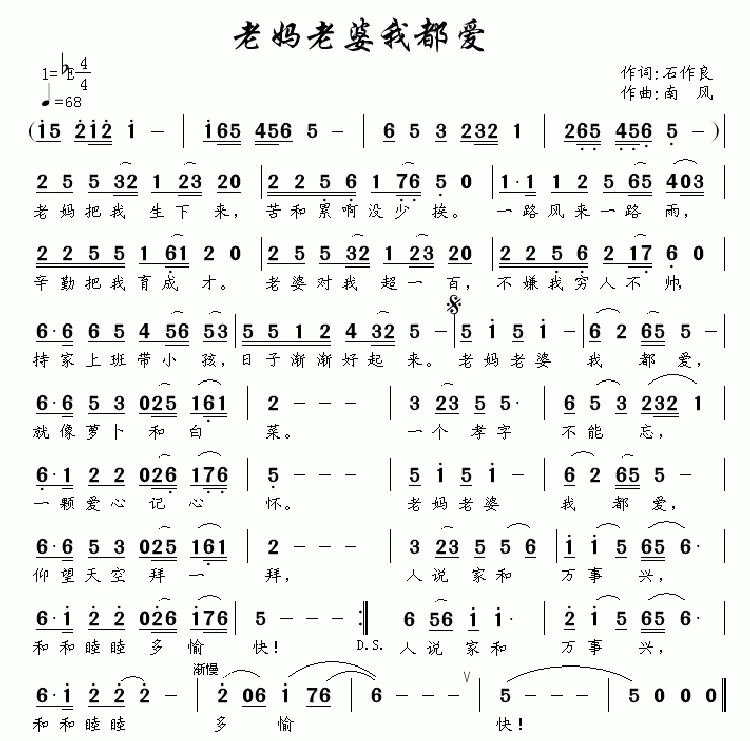 老妈老婆我都爱
1=♭E 4/4
作词:石作良
♩=68
作曲:南 风
(i5 2i2 i - | i65 456 5 - | 6 5 3 232 1 | 265 456 5 - )|
2 5 5 32 1 23 20 | 2 2 5 6 1 76 5 0 | 1·1 1 2 5 65 403 |
老妈把我 生下来, 苦和累啊没少挨。 一路风来一路雨,
2 2 5 5 1 61 2 0 | 2 5 5 32 1 23 20 | 2 2 5 6 2 17 6 0 |
辛勤把我育成才。 老婆对我 超一百, 不嫌我穷人不帅,
6·6 6 5 4 56 53 | 5 5 1 2 4 32 5 - | 5 i 5 i - | 6 2 65 5 - |
持家上班带小孩,日子渐渐好起来。老妈老婆 我都爱,
6·6 5 3 025 161 | 2 - - - | 3 23 5 5· | 6 5 3 232 1 |
就像萝卜和白 菜。 一个孝字 不能忘,
6·1 2 2 026 176 | 5 - - - | 5 i 5 i - | 6 2 65 5 - |
一颗爱心记心 怀。 老妈老婆 我都爱,
6·6 5 3 025 161 | 2 - - - | 3 23 5 56 | i i 5 65 6· |
仰望天空拜一 拜, 人说家和 万事兴,
6·i 2 2 026 i76 | 5 - - - :‖ 6 56 i i· | 2 i 5 65 6· |
和和睦睦多愉 快! D.S. 人说家和 万事兴,
渐慢
6·i 2 2 2 - | 2 06 i 76 | 6 - - - ∨ | 5 - - - | 5 0 0 0 ‖
和和睦睦 多 愉 快!